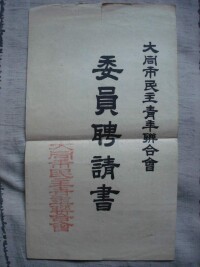 大同市民主青年聯合會
委員聘請書
大同市民主青年